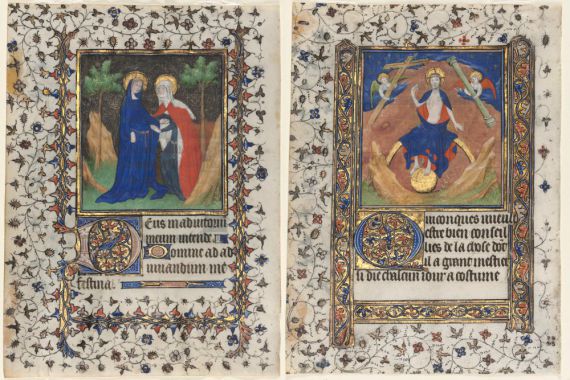 Deus in adiutoriu
meum intende
Domine ad ad
iuuandum me
festina.
Quiconques uieut
estre bien conseil
lies de la chose dot
il a grant mestier
si die chascun iour a costume